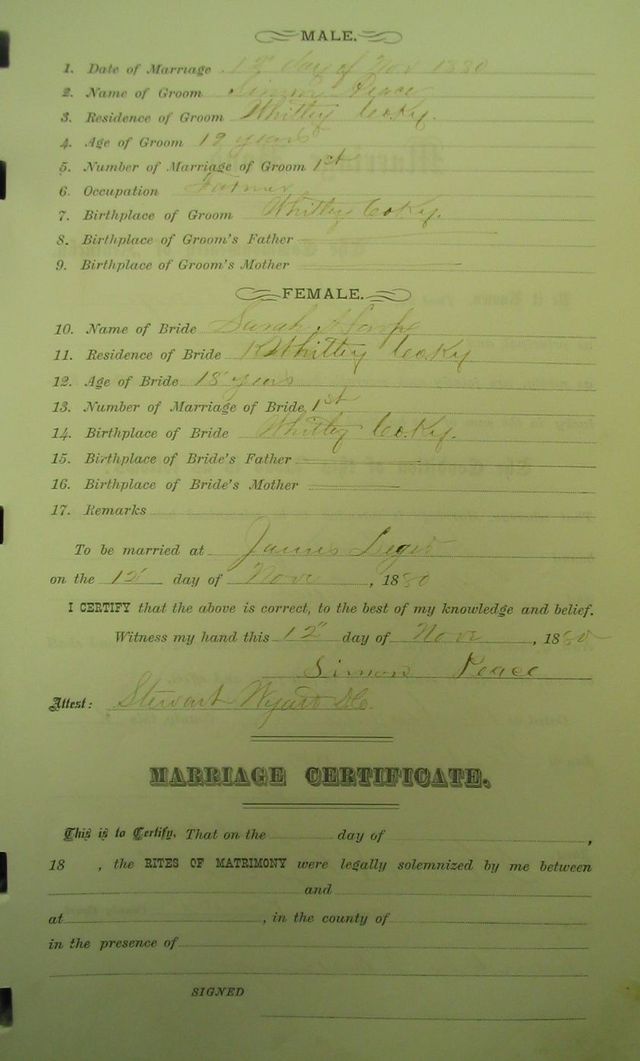 MALE.
1. Date of Marriage 12" day of Nov 1880
2. Name of Groom Simon Peace
3. Residence of Groom Whitley Co Ky.
4. Age of Groom 19 years
5. Number of Marriage of Groom 1st
6. Occupation Farmer
7. Birthplace of Groom Whitley Co Ky.
8. Birthplace of Groom's Father
9. Birthplace of Groom's Mother
FEMALE.
10. Name of Bride Sarah
11. Residence of Bride Whitley Co Ky
12. Age of Bride 18 years
13. Number of Marriage of Bride 1st
14. Birthplace of Bride Whitley Co. Ky.
15. Birthplace of Bride's Father
16. Birthplace of Bride's Mother
17. Remarks
To be married at James
on the 12 day of Nov , 1880
I CERTIFY that the above is correct, to the best of my knowledge and belief.
Witness my hand this 12" day of Nov , 1880
Simon Peace
Attest: Stewart Wyatt
MARRIAGE CERTIFICATE.
This is to Certify, That on the day of ,
18 , the RITES OF MATRIMONY were legally solemnized by me between
and
at , in the county of
in the presence of
SIGNED